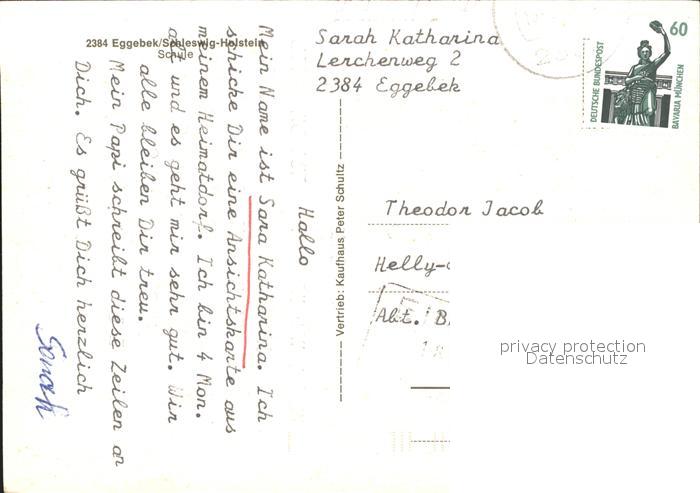 2384 Eggebek/Schleswig-Holstein
Schule
Hallo
Mein Name ist Sara Katharina. Ich
schicke Dir eine Ansichtskarte aus
meinem Heimatdorf. Ich bin 4 Mon.
alt und es geht mir sehr gut. Wir
alle bleiben Dir treu.
Mein Papi schreibt diese Zeilen an
Dich. Es grüßt Dich herzlich
Sarah
Vertrieb: Kaufhaus Peter Schultz
Sarah Katharina
Lerchenweg 2
2384 Eggebek
60
DEUTSCHE BUNDESPOST
BAVARIA MÜNCHEN
Theodor Jacob
Helly-
Abt. B
privacy protection
Datenschutz